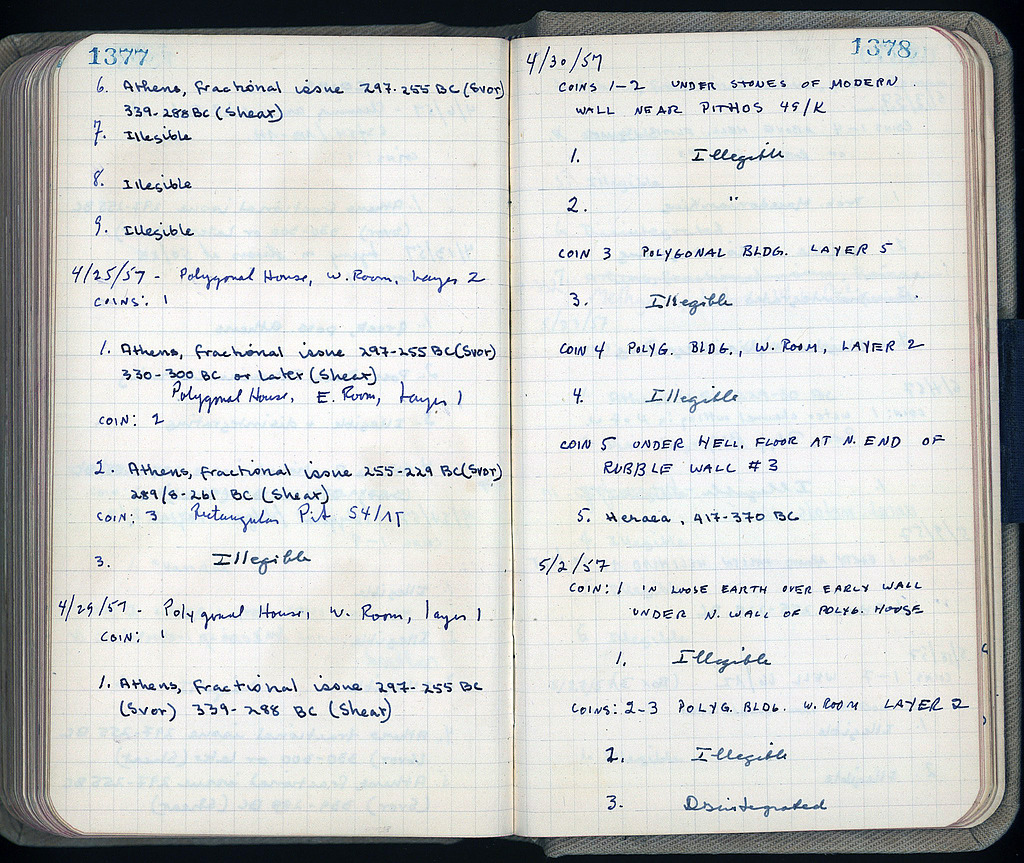 1377
6. Athens, fractional issue 297-255 BC (Svor)
339-288 BC (Shear)
7. Illegible
8. Illegible
9. Illegible
4/25/57 - Polygonal House, W. Room, Layer 2
COINS: 1
1. Athens, fractional issue 297-255 BC (Svor)
330-300 BC or later (Shear)
Polygonal House, E. Room, Layer 1
COIN: 2
2. Athens, fractional issue 255-229 BC (Svor)
289/8-261 BC (Shear)
COIN: 3 Rectangular Pit
3. Illegible
4/29/57 - Polygonal House, W. Room, layer 1
COIN: 1
1. Athens, fractional issue 297-255 BC
(Svor) 339-288 BC (Shear)
1378
4/30/57
COINS 1-2 UNDER STONES OF MODERN
WALL NEAR PITHOS 45/K
1. Illegible
2. "
COIN 3 POLYGONAL BLDG. LAYER 5
3. Illegible
COIN 4 POLYG. BLDG., W. ROOM, LAYER 2
4. Illegible
COIN 5 UNDER HELL. FLOOR AT N. END OF
RUBBLE WALL #3
5. Heraea, 417-370 BC
5/2/57
COIN: 1 IN LOOSE EARTH OVER EARLY WALL
UNDER N. WALL OF POLYG. HOUSE
1. Illegible
COINS: 2-3 POLYG. BLDG. W. ROOM LAYER 2
2. Illegible
3. Disintegrated